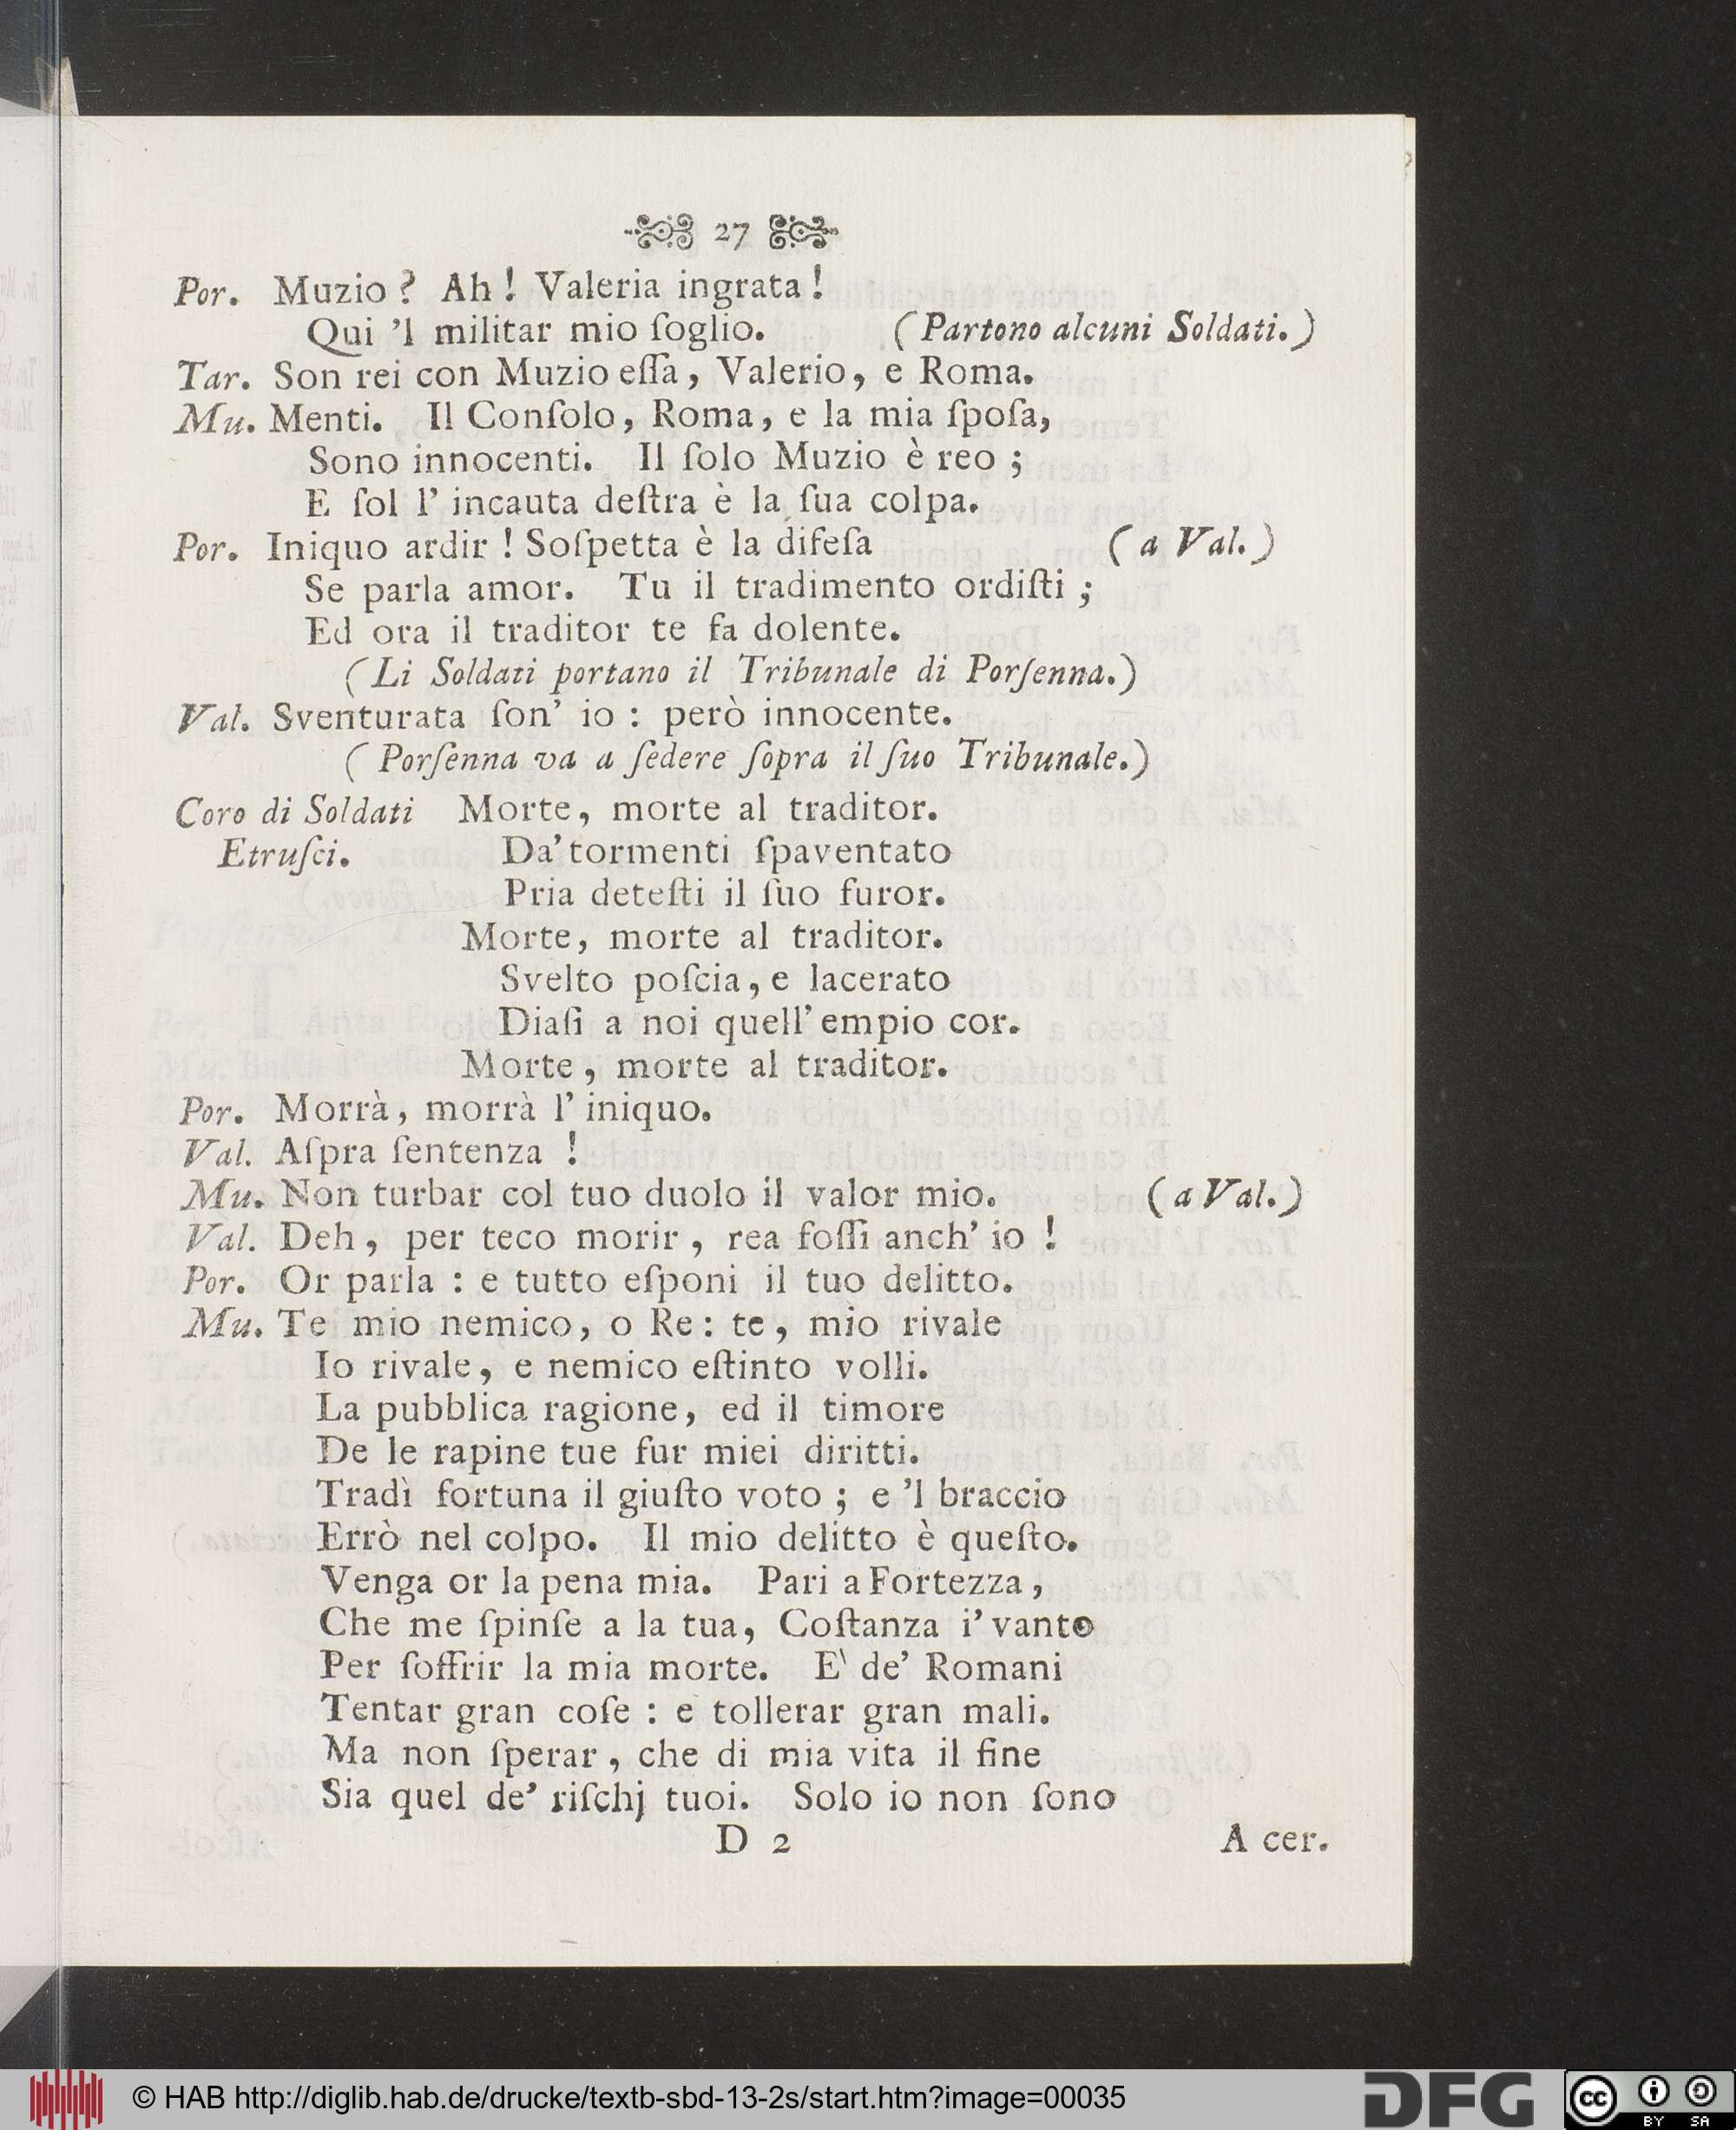 27
Por. Muzio? Ah! Valeria ingrata!
Qui 'l militar mio ſoglio. (Partono alcuni Soldati.)
Tar. Son rei con Muzio eſſa, Valerio, e Roma.
Mu. Menti. Il Conſolo, Roma, e la mia ſpoſa,
Sono innocenti. Il ſolo Muzio è reo;
E ſol l' incauta deſtra è la ſua colpa.
Por. Iniquo ardir! Soſpetta è la difeſa (a Val.)
Se parla amor. Tu il tradimento ordiſti;
Ed ora il traditor te fa dolente.
(Li Soldati portano il Tribunale di Porſenna.)
Val. Sventurata ſon' io: però innocente.
(Porſenna va a ſedere ſopra il ſuo Tribunale.)
Coro di Soldati Morte, morte al traditor.
Etruſci. Da' tormenti ſpaventato
Pria deteſti il ſuo furor.
Morte, morte al traditor.
Svelto poſcia, e lacerato
Diaſi a noi quell' empio cor.
Morte, morte al traditor.
Por. Morrà, morrà l' iniquo.
Val. Aſpra ſentenza!
Mu. Non turbar col tuo duolo il valor mio. (a Val.)
Val. Deh, per teco morir, rea foſſi anch' io!
Por. Or parla: e tutto eſponi il tuo delitto.
Mu. Te mio nemico, o Re: te, mio rivale
Io rivale, e nemico eſtinto volli.
La pubblica ragione, ed il timore
De le rapine tue fur miei diritti.
Tradì fortuna il giuſto voto; e 'l braccio
Errò nel colpo. Il mio delitto è queſto.
Venga or la pena mia. Pari a Fortezza,
Che me ſpinſe a la tua, Coſtanza i' vanto
Per ſoffrir la mia morte. E' de' Romani
Tentar gran coſe: e tollerar gran mali.
Ma non ſperar, che di mia vita il fine
Sia quel de' riſchj tuoi. Solo io non ſono
D 2 A cer.
© HAB http://diglib.hab.de/drucke/textb-sbd-13-2s/start.htm?image=00035
DFG
cc BY SA